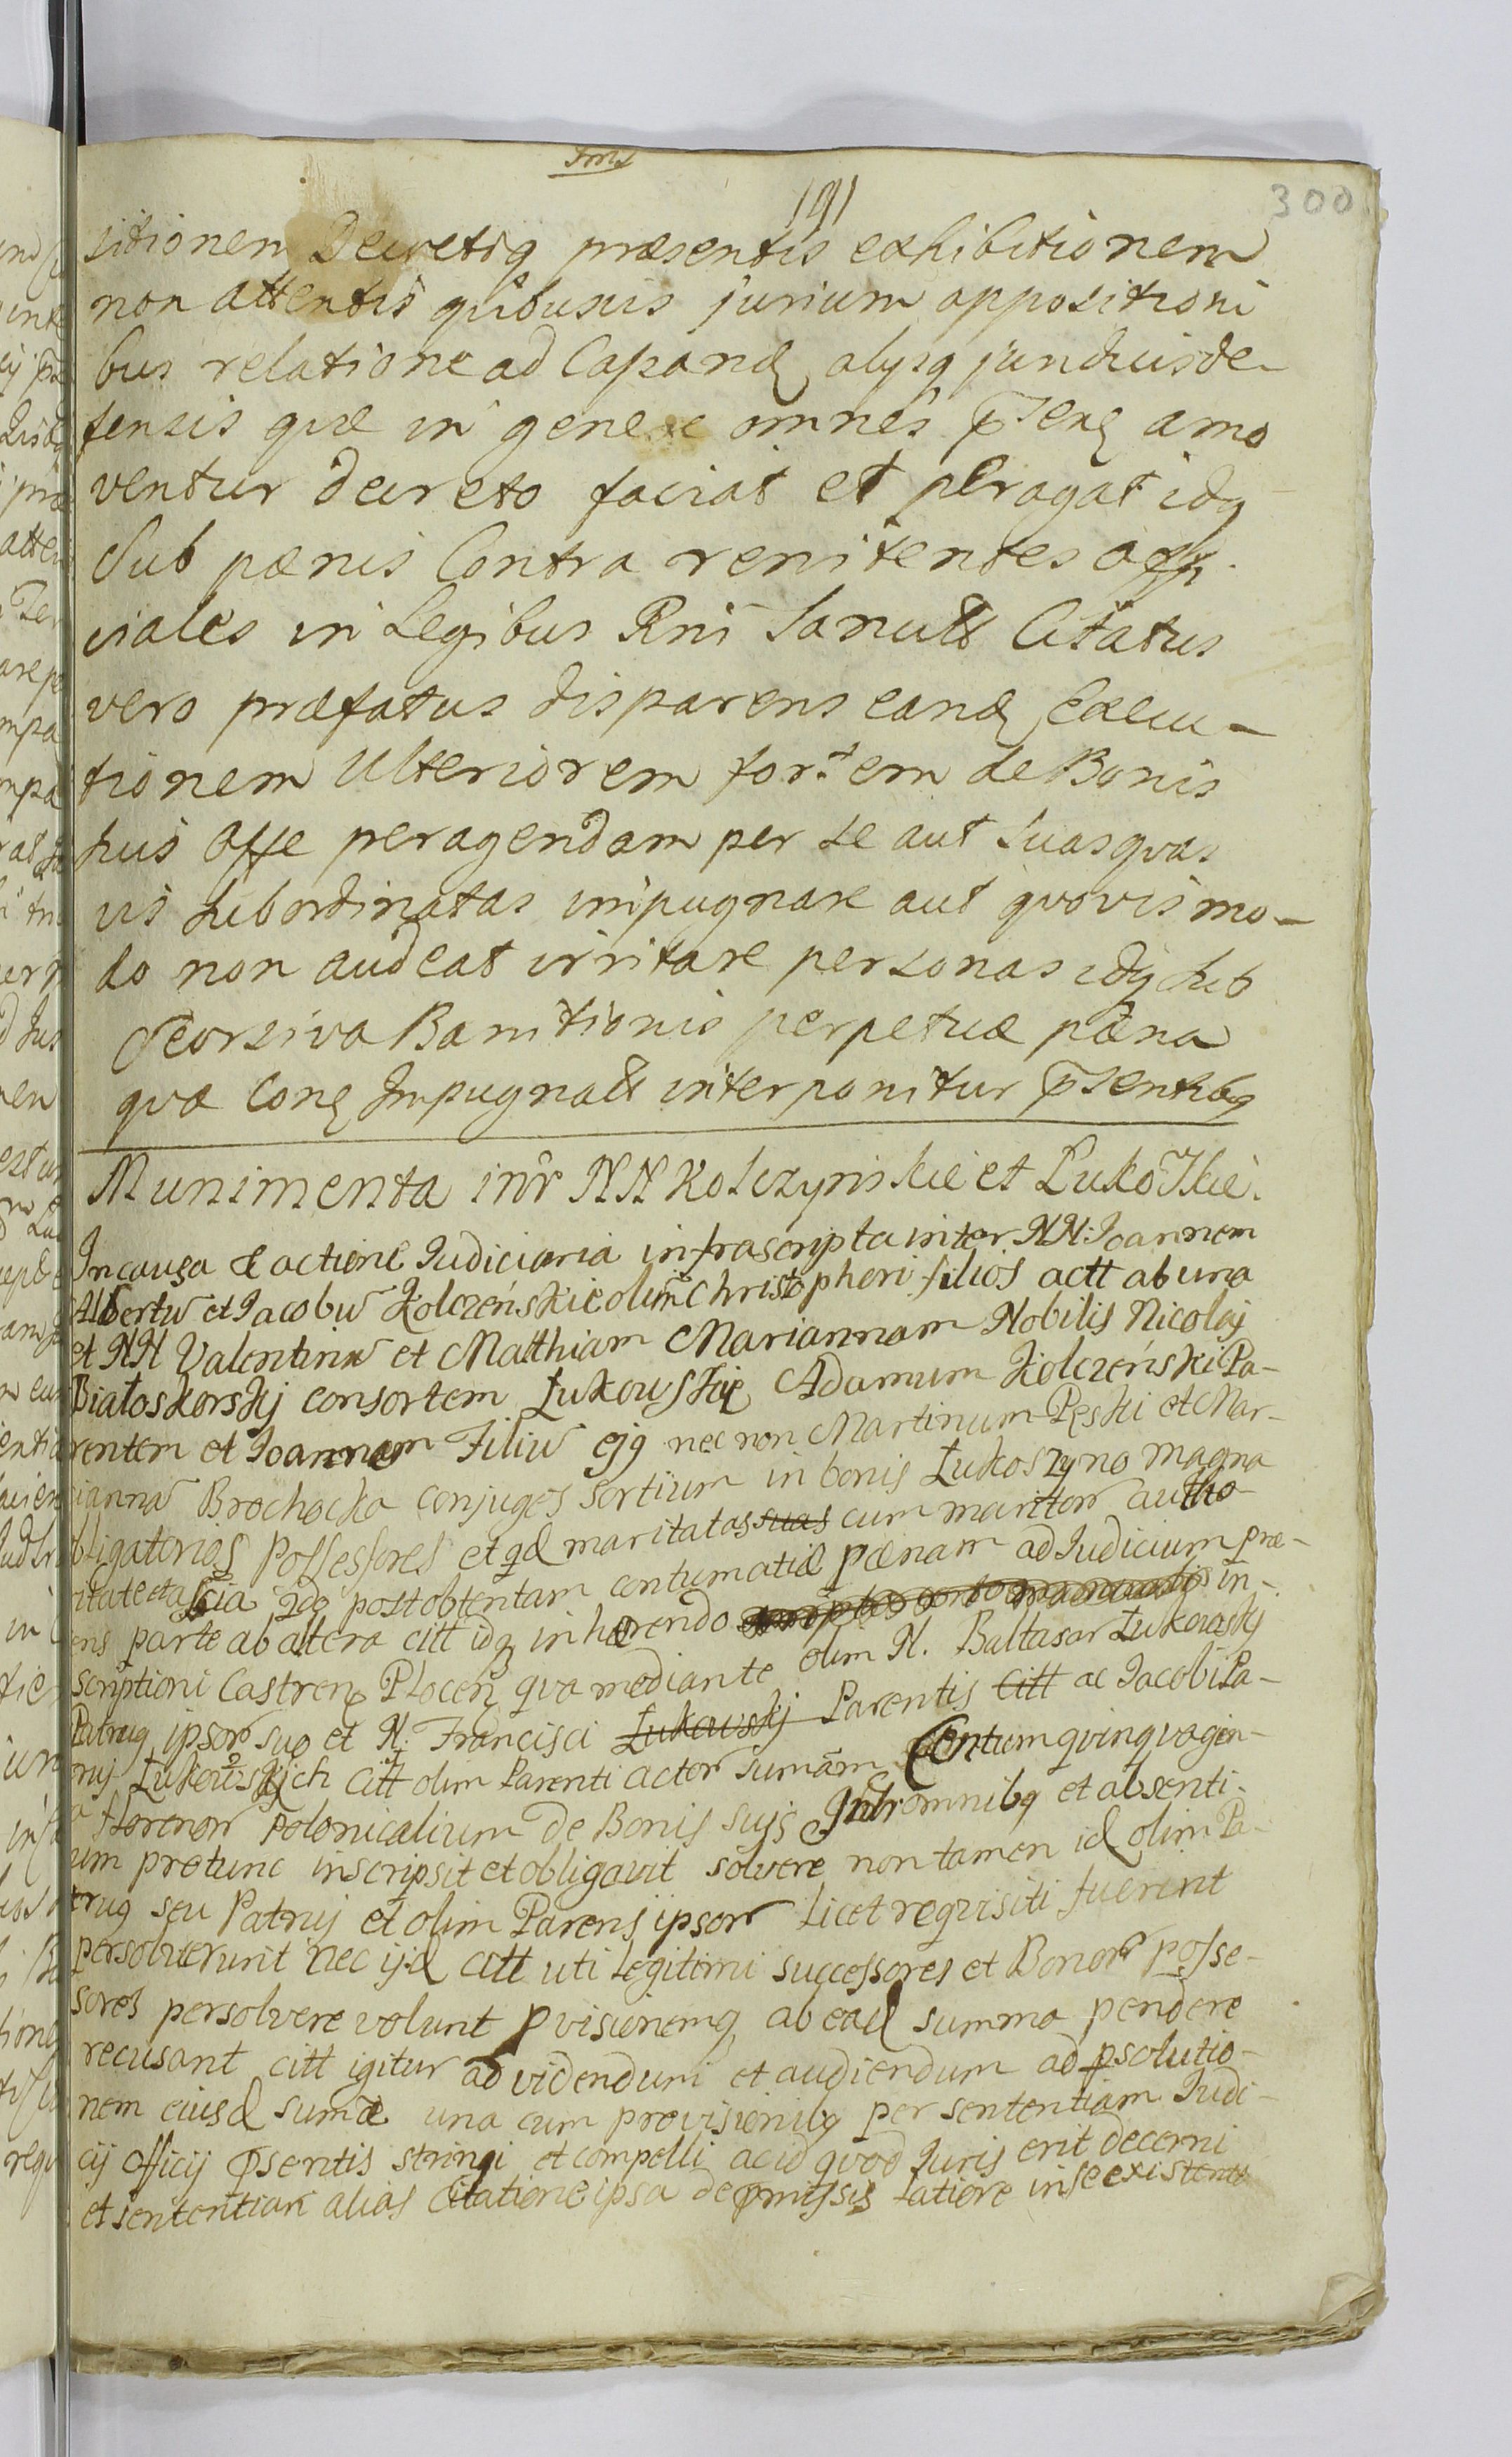 191
300
sitionem Decretiq præsentis exhibitionem
non attentis quibusvis jurium oppositioni
bus relatione ad Capand alijsq juriducis de-
fensis quæ in genere omnes pnseng amo
ventur decreto faciat et peragat idq
Sub pænis Contra renitentes offi-
ciales in Legibus Rni Sancitt Citatus
vero præfatus disparens eand Execu-
tionem Ulteriorem fortem de Bonis
huis Offe peragendam per se aut suas quas
vis subordinatas impugnare aut quovis mo-
do non audeat irritare personas idq sub
Seorsiva Banitionis perpetuæ pæna
quæ Cong Impugnatt interponitur pnsentibq
Munimenta intr NN Kolczynskie et Lukoskie.
In causa et actione Judiciaria infrascripta inter NN: Joannem
Albertu et Jacobu Kolczeńskie olim Christopheri filios actt ab una
et NN Valentinu et Matthiam Mariannam Nobilis Nicolaj
Białoskorskj consortem Łukowskie Adamum Kolczeński Pa-
rentem et Joannem Filiu ejq nec non Martinum Pęski et Mar-
iannă Brochocka conjuges sortium in bonis Łukoszyno magna
obligatorios possessores et qd maritatas suas cum maritor autho-
ritate et assia 2do post obtentam contumatiæ pænam ad Judicium præ-
ens parte ab altera citt idq inhærendo in-
scriptioni Castreng Plocen qua mediante olim N. Baltasar Łukowskj
Patruq ipsor suo et N. Francisci Łukowskj Parentis Citt ac Jacobi Pa-
truj Łukowskich citt olim Parenti actor sumam Centum quinquagin-
a florenor polonicalium de Bonis suis Intr omnibq et absenti-
um protunc inscripsit et obligavit solvere non tamen id olim Pa-
truq seu Patruj et olim Parens ipsor licet reqvisiti fuerint
persolverunt nec ijd citt uti legitimi successores et Bonor posse-
sores persolvere volunt pvisionemq ab ead summa pendere
recusant citt igitur ad videndum et audiendum ad psolutio-
nem eiusd sumæ una cum provisionibq per sententiam Judi-
cij officij pnsentis stringi et compelli ac id quod Juris erit decerni
et sententiari alias Citatione ipsa de pmissis latiore in se existente